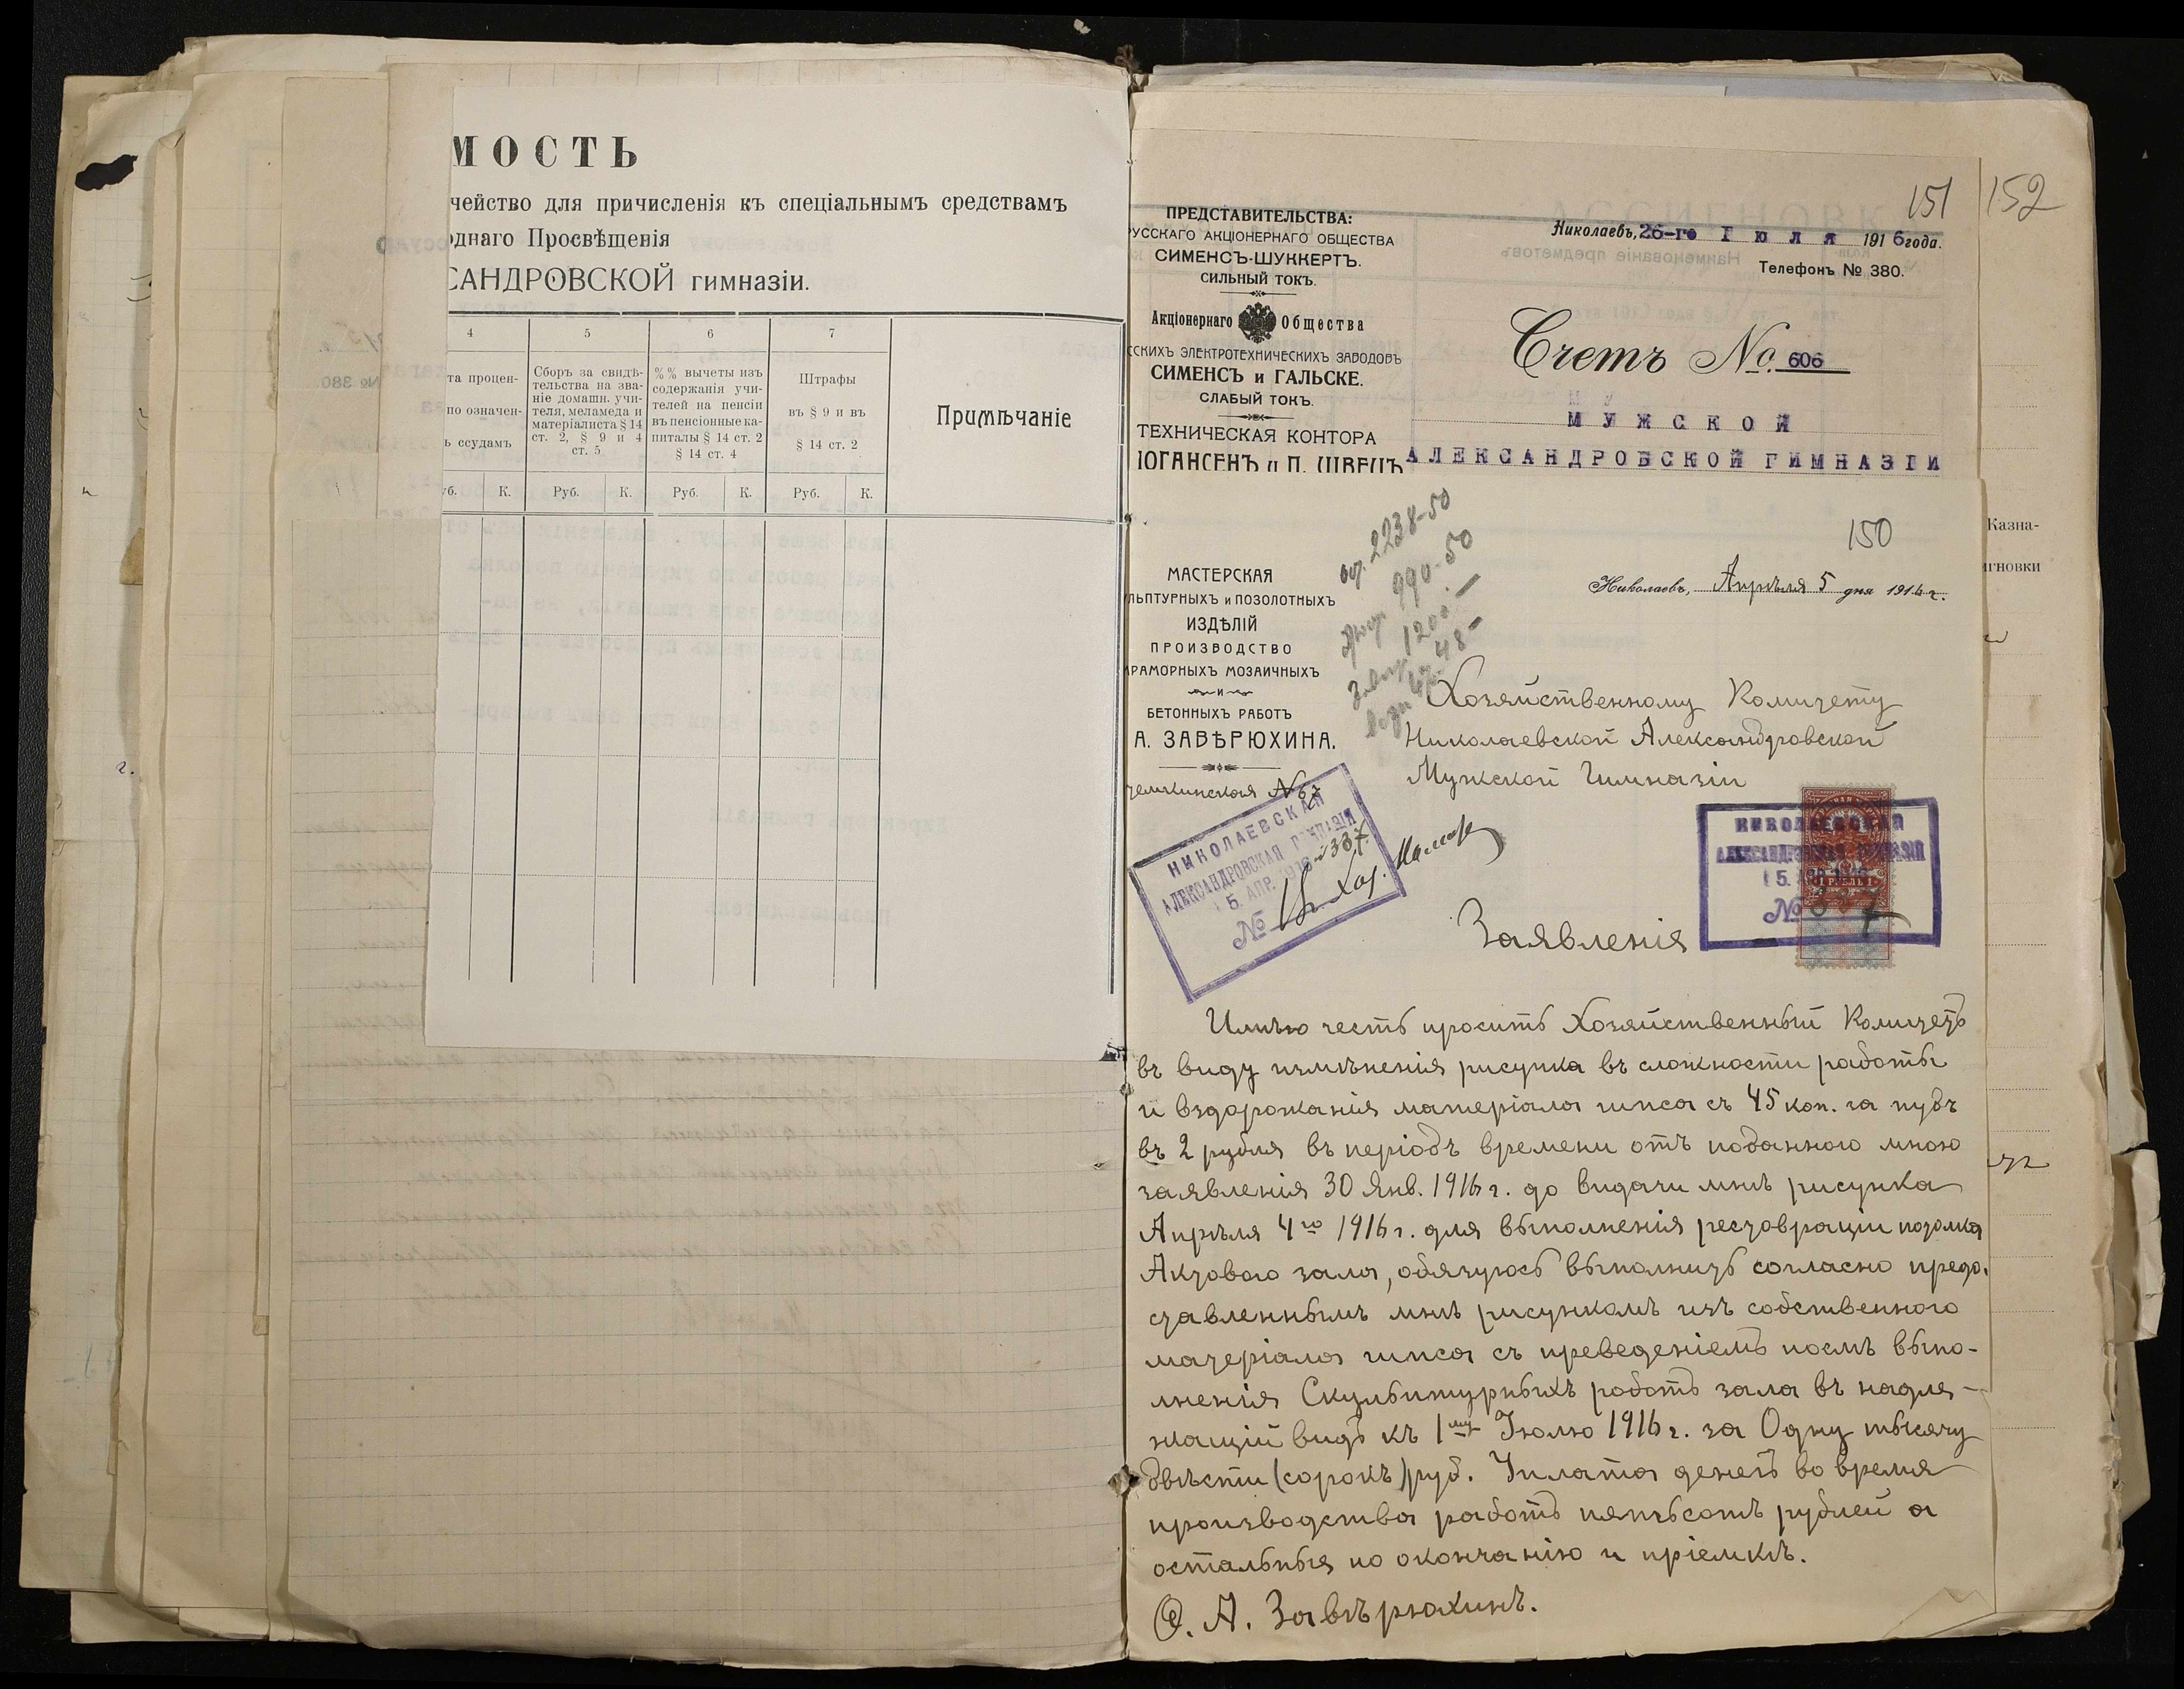 МОСТЬ
чейство для причисленія къ спеціальнымъ средствамъ
однаго Просвѣщенія
САНДРОВСКОЙ гимназіи.
4
5
6
7
та процен-
по означен-
ь ссудамъ
Сборъ за свидѣ-
тельства на зва-
ніе домашн. учи-
теля, меламеда и
матеріалиста § 14
ст. 2, § 9 и 4
ст. 5
%% вычеты изъ
содержанія учи-
телей на пенсіи
въ пенсіонные ка-
питалы § 14 ст. 2
§ 14 ст. 4
Штрафы
въ § 9 и въ
§ 14 ст. 2
Примѣчаніе
уб. К. Руб. К. Руб. К. Руб. К.
151
152
ПРЕДСТАВИТЕЛЬСТВА:
УССКАГО АКЦІОНЕРНАГО ОБЩЕСТВА
СИМЕНСЪ-ШУККЕРТЪ.
СИЛЬНЫЙ ТОКЪ.
Акціонернаго Общества
СКИХЪ ЭЛЕКТРОТЕХНИЧЕСКИХЪ ЗАВОДОВЪ
СИМЕНСЪ и ГАЛЬСКЕ.
СЛАБЫЙ ТОКЪ.
ТЕХНИЧЕСКАЯ КОНТОРА
ІОГАНСЕНЪ и П. ШВЕЦЪ
Николаевъ, 26-го Іюля 1916 года.
Телефонъ № 380.
Счетъ No. 606
МУЖСКОЙ
АЛЕКСАНДРОВСКОЙ ГИМНАЗІИ
Казна-
игновки
150
2238-50
990-50
1200-
48-
МАСТЕРСКАЯ
ЛЬПТУРНЫХЪ и ПОЗОЛОТНЫХЪ
ИЗДѢЛІЙ
ПРОИЗВОДСТВО
РАМОРНЫХЪ МОЗАИЧНЫХЪ
и
БЕТОННЫХЪ РАБОТЪ
А. ЗАВѢРЮХИНА.
темкинская № 67
Николаевъ, Апрѣля 5 дня 1916 г.
Хозяйственному Комитету
Николаевской Александровской
Мужской Гимназіи
НИКОЛАЕВСКАЯ
АЛЕКСАНДРОВСКАЯ ГИМНАЗІЯ
5. АПР. 1916
№
337
НИКОЛАЕВСКАЯ
АЛЕКСАНДРОВСКАЯ ГИМНАЗІЯ
5. АПР. 1916
№
1 РУБЛЬ 1
Заявленія
Имѣю честь просить Хозяйственный Комитетъ
въ виду измѣненія рисунка въ сложности работы
и вздорожанія матеріала гипса съ 45 коп. за пудъ
въ 2 рубля въ періодъ времени отъ поданного мною
заявленія 30 Янв. 1916 г. до видачи мнѣ рисунка
Апрѣля 4го 1916 г. для выполненія реставраціи потолка
Актоваго зала, обязуюсь выполнить согласно предо-
ставленнымъ мнѣ рисункомъ изъ собственного
матеріала гипса съ преведеніемъ послѣ выпо-
лненія Скульптурныхъ работъ зала въ надле-
жащій видъ къ 1му Іюлю 1916 г. за Одну тысячу
двѣсти (сорокъ) руб. Уплата денегъ во время
производства работъ пятьсотъ рублей а
остальныя по окончанію и пріемкѣ.
Ф. А. Завѣрюхинъ.